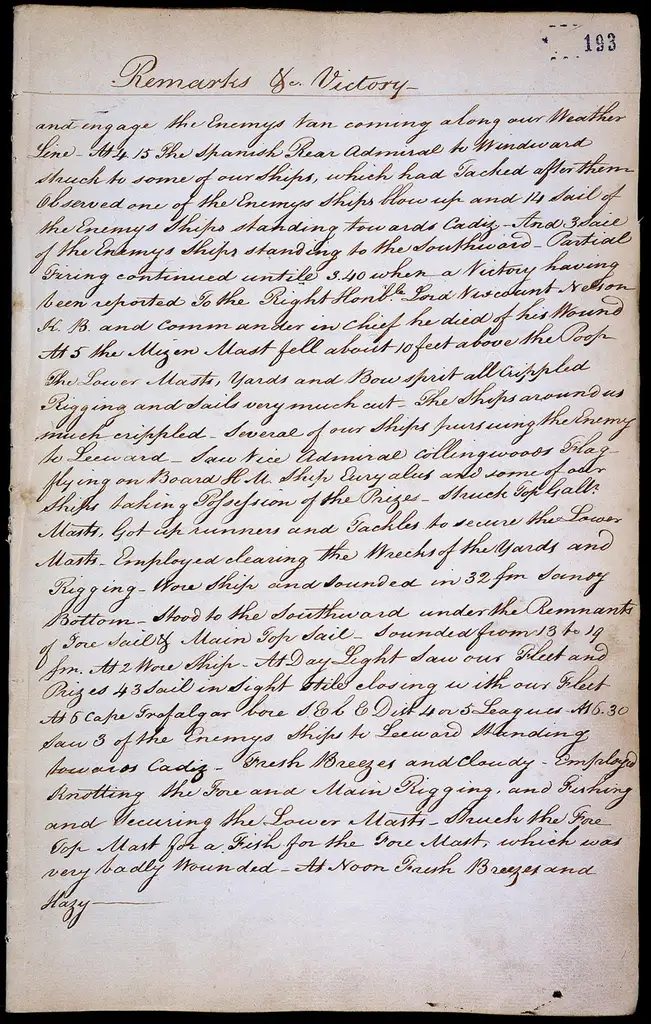 193
Remarks &c. Victory
and engage the Enemys Van coming along our Weather
Line - At 4 15 The Spanish Rear Admiral to Windward
struck to some of our Ships, which had Tacked after them
Observed one of the Enemys Ships blow up and 14 Sail of
the Enemys Ships standing towards Cadiz - And 3 Sail
of the Enemys Ships standing to the Southward - Partial
Firing continued untile 3.40 when a Victory having
been reported To the Right Honble Lord Viscount Nelson
K. B. and Commander in Chief he died of his Wound
At 5 the Mizen Mast fell about 10 feet above the Poop
The Lower Masts, Yards and Bowsprit all Crippled
Rigging and Sails very much cut - The Ships around us
much crippled - Several of our Ships pursuing the Enemy
to Leeward - Saw Vice Admiral Collingwoods Flag
flying on Board H. M. Ship Euryalus and some of our
Ships taking Possession of the Prizes - Struck Top Gallt.
Masts, Got up runners and Tackles to secure the Lower
Masts - Employed clearing the Wrecks of the Yards and
Rigging - Wore Ship and Sounded in 32 fm Sandy
Bottom - Stood to the Southward under the Remnants
of Fore Sail & Main Top Sail - Sounded from 13 to 19
fm. At 2 Wore Ship - At Day Light Saw our Fleet and
Prizes 43 Sail in Sight Still closing with our Fleet
At 6 Cape Trafalgar bore S. E b E Dist 4 or 5 Leagues - At 6.30
Saw 3 of the Enemys Ships to Leeward Standing
towards Cadiz - Fresh Breezes and Cloudy - Employed
Knotting the Fore and Main Rigging, and Fishing
and Securing the Lower Masts - Struck the Fore
Top Mast for a Fish for the Fore Mast, which was
very badly Wounded - At Noon Fresh Breezes and
Hazy